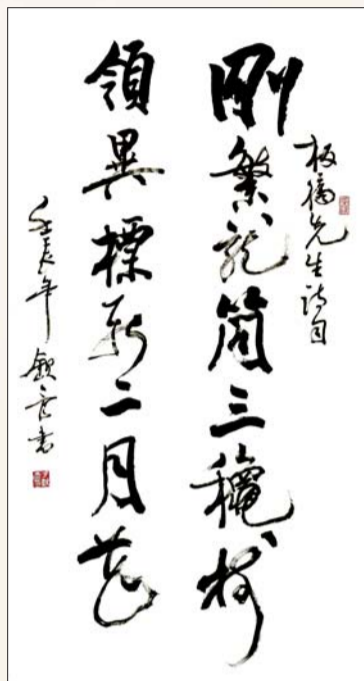 板橋先生詩句
刪繁就簡三穐樹
領異標新二月花
壬辰年 書